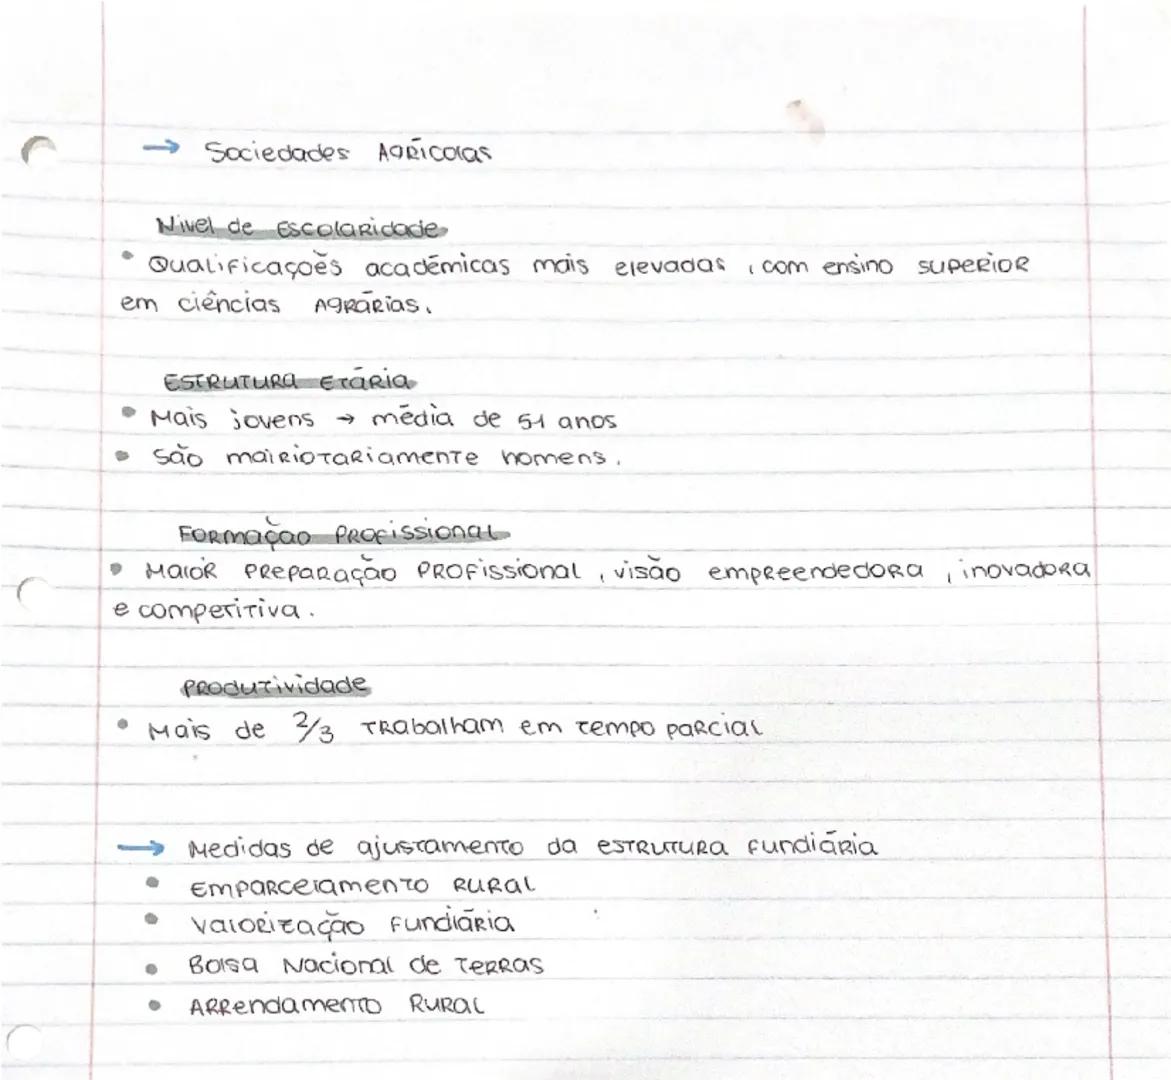 → Sociedades Agrícolas
Nivel de Escolaridade
• Qualificações académicas mais elevadas, com ensino superior
em ciências Agrárias.
Estrutura Etária
• Mais jovens → média de 51 anos
• São mairiotariamente homens.
Formação Profissional
• Maior preparação profissional, visão empreendedora, inovadora
e competitiva.
Produtividade
• Mais de 2/3 trabalham em tempo parcial
→ Medidas de ajustamento da estrutura fundiária
• Emparcelamento Rural
• Valorização fundiária
• Bolsa Nacional de Terras
• Arrendamento Rural